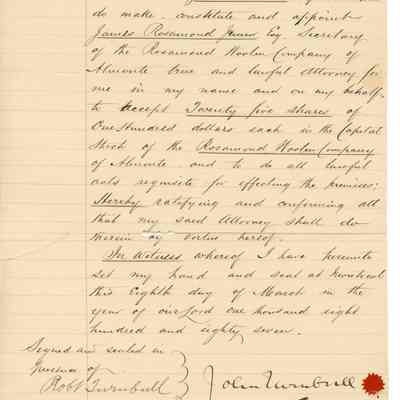 do make constitute and appoint
James Rosamond Junior Esq Secretary
of the Rosamond Woolen Company of
Almonte true and lawful Attorney for
me in my name and on my behalf
to accept Twenty five shares of
One Hundred dollars each in the Capital
Stock of the Rosamond Woolen Company
of Almonte and to do all lawful
acts requisite for effecting the premises;
Hereby ratifying and confirming all
that my said Attorney shall do
therein by virtue hereof.
In Witness whereof I have hereunto
set my hand and seal at Montreal
this Eighth day of March in the
year of our Lord one thousand eight
hundred and eighty seven.
Signed and sealed in
presence of
Robt Turnbull
John Turnbull